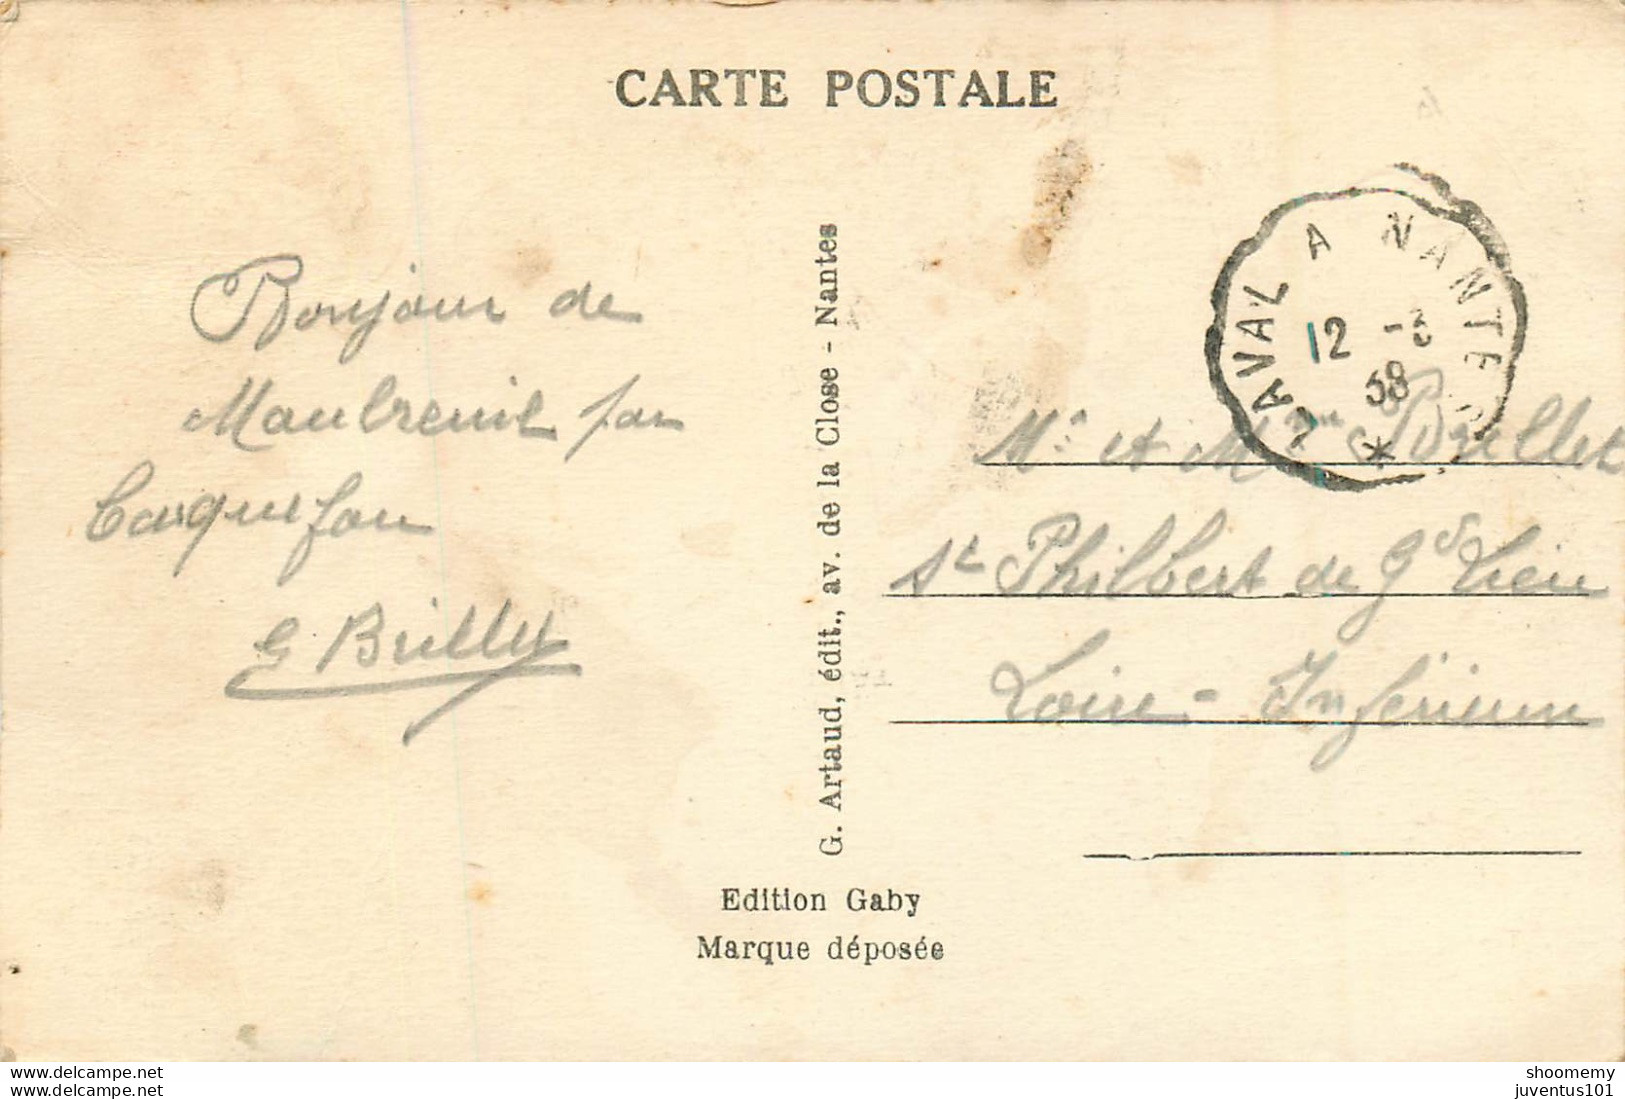 CARTE POSTALE
LAVAL A NANTES
12 -3
38
*
Bonjour de
Maubreuil par
Carquefou
G Brillet
G. Artaud, édit., av. de la Close - Nantes
Mr et Mme Brillet
St Philbert de Gd Lieu
Loire-Inférieure
Edition Gaby
Marque déposée
delcampe.net
delcampe.net
shoomemy
juventus101